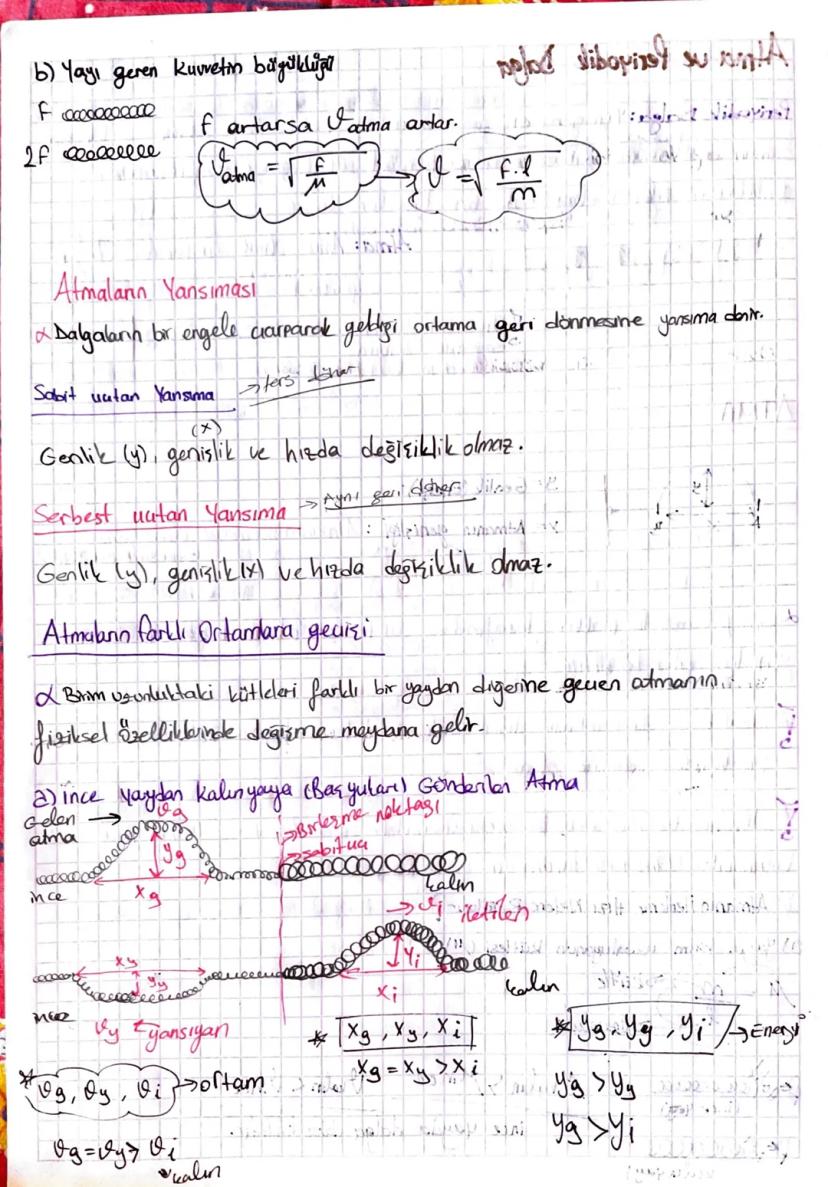 Atma ve Periyodik Dalga
b) Yayı geren kuvvetin büyüklüğü
F
2F
f artarsa ϑatma artar.
ϑatma = √(F/μ) → ϑ = √(F.l/m)
Atmaların Yansıması
α Dalgaların bir engele çarparak geldiği ortama geri dönmesine yansıma denir.
Sabit uçtan Yansıma → ters döner
(x)
Genlik (y), genişlik ve hızda değişiklik olmaz.
Serbest uçtan Yansıma → Aynı geri döner
Genlik (y), genişlik (x) ve hızda değişiklik olmaz.
Atmaların farklı Ortamlara geçişi
α Birim uzunluktaki kütleleri farklı bir yaydan diğerine geçen atmanın
fiziksel özelliklerinde değişme meydana gelir.
a) ince yaydan kalın yaya (Baş yukarı) Gönderilen Atma
Gelen → ϑg
atma
→ Birleşme noktası
→ sabit uç
yg
ince
xg
kalın
→ ϑi iletilen
xy
yy
yi
xi
kalın
ince
ϑy ← yansıyan
* xg, xy, xi
xg = xy > xi
* yg, yy, yi → Enerji
yg > yy
yg > yi
* ϑg, ϑy, ϑi → ortam
ϑg = ϑy > ϑi
kalın